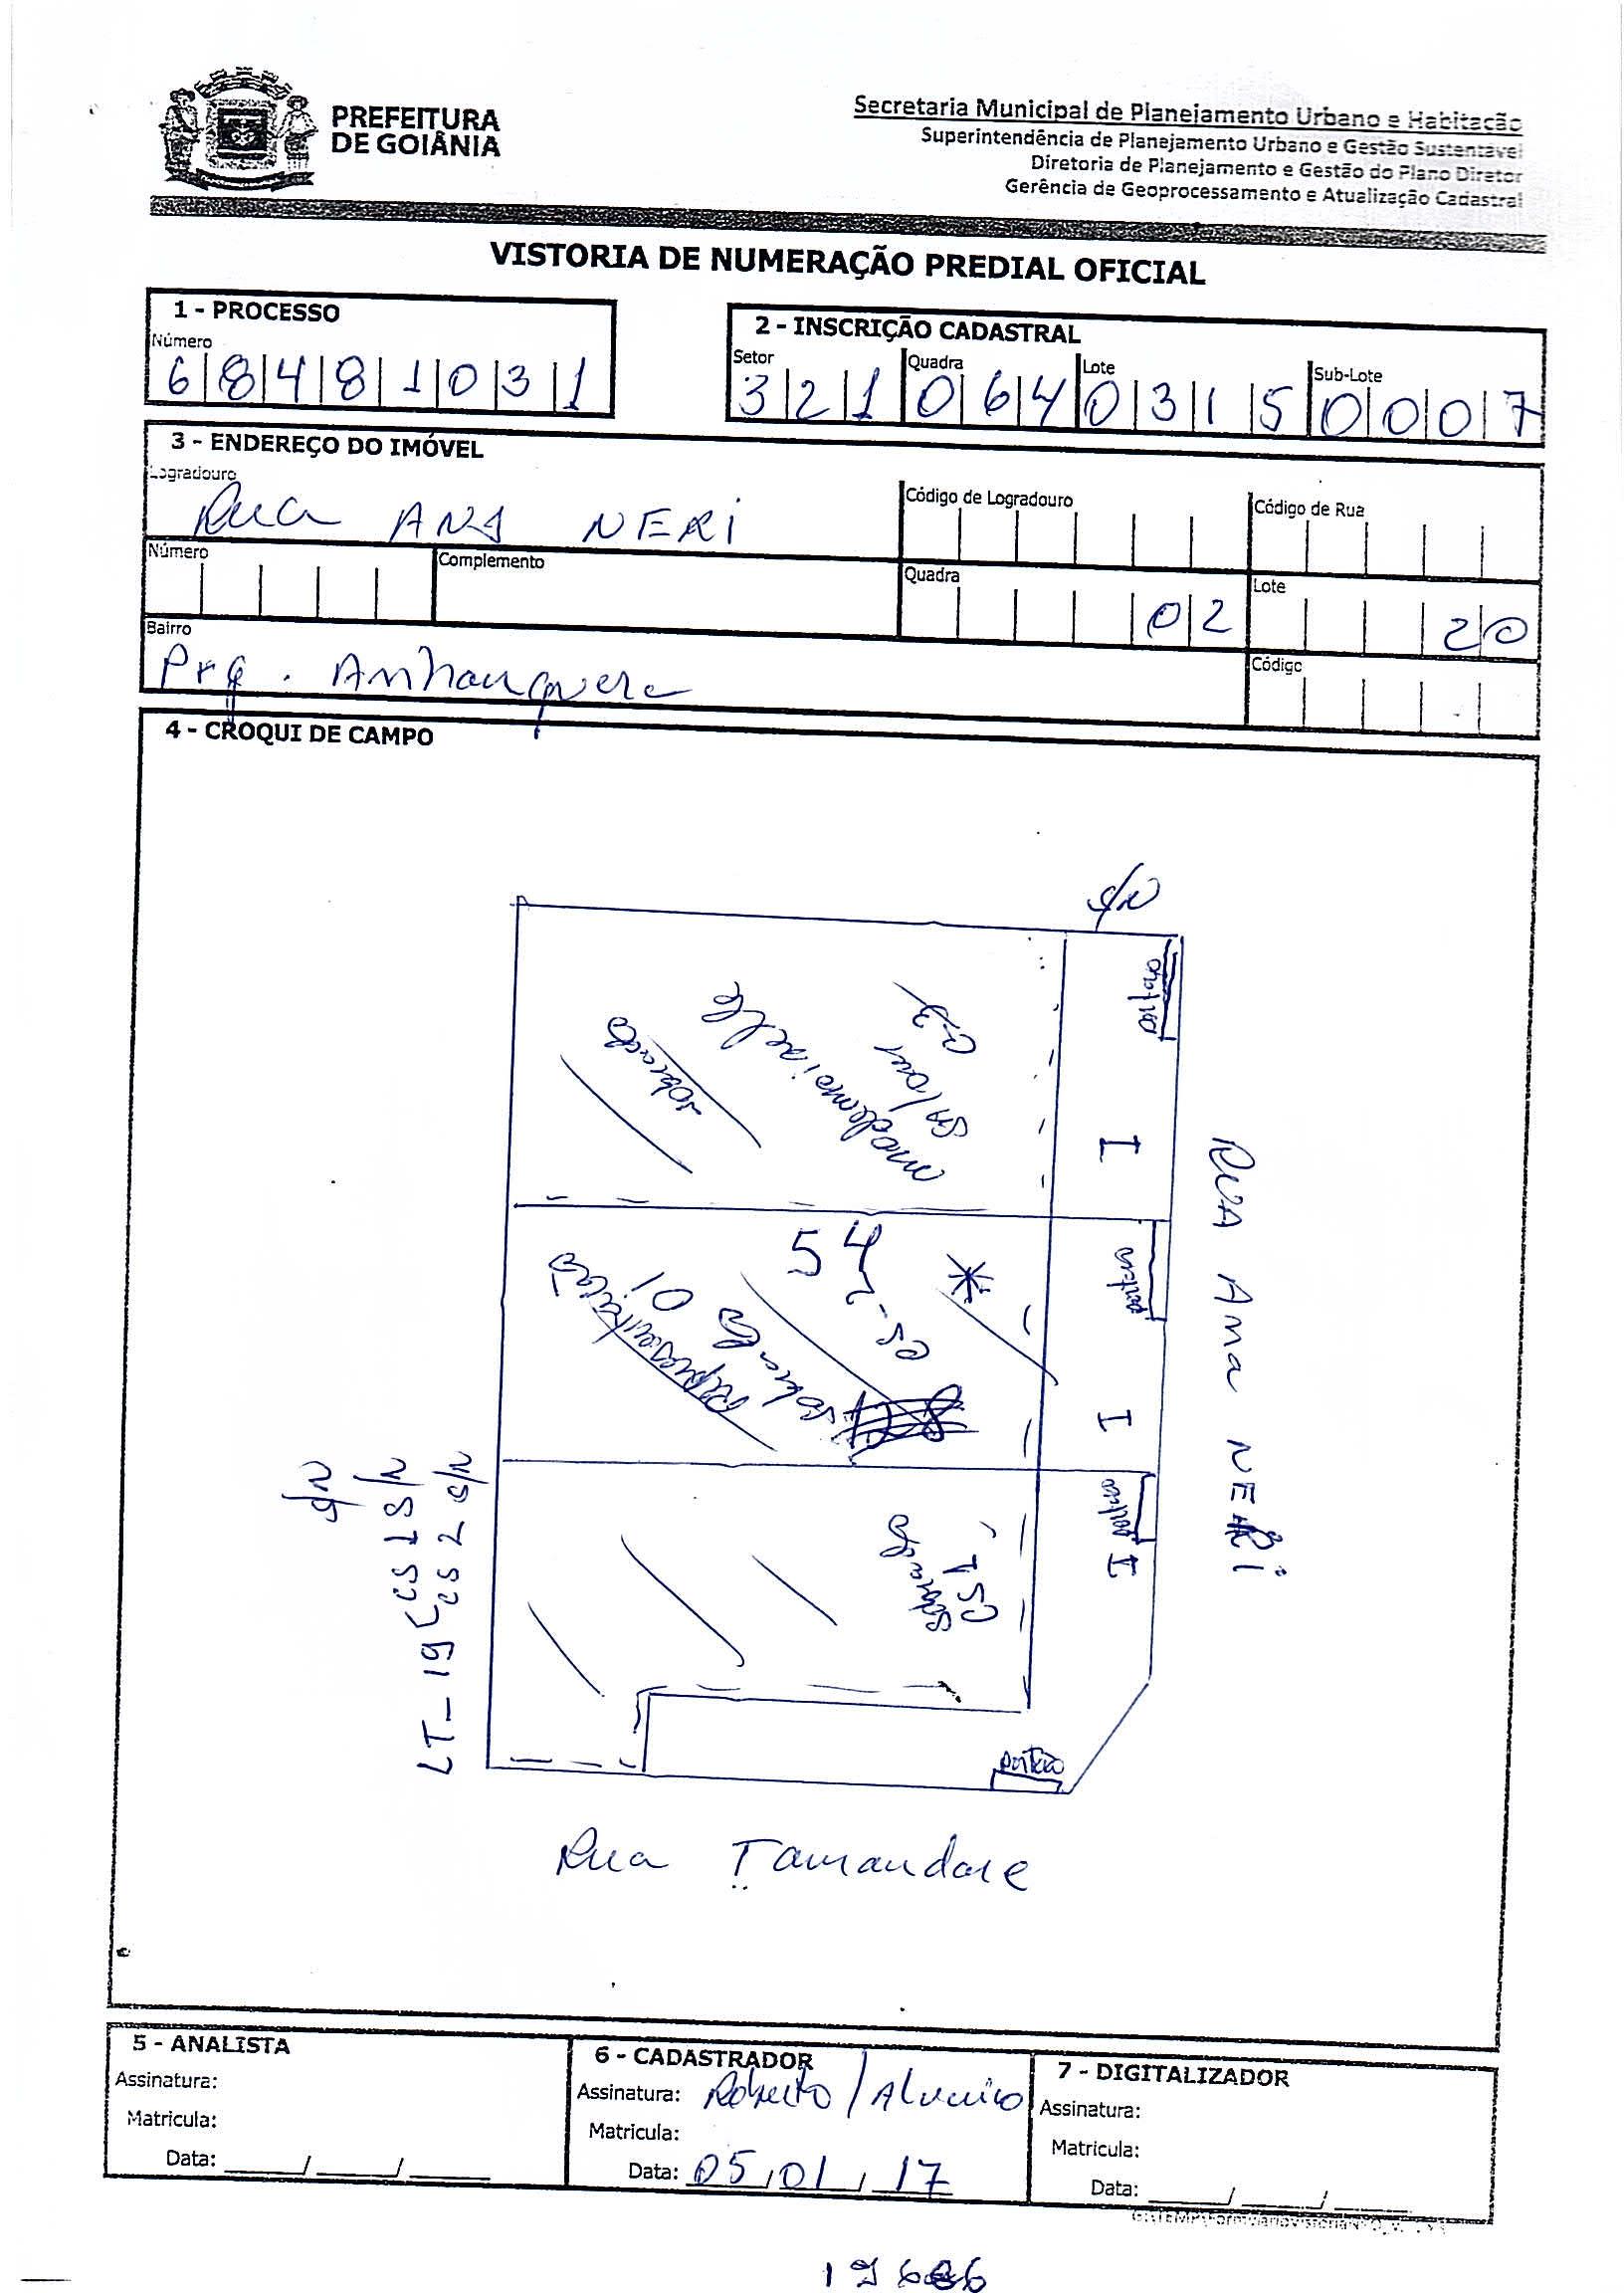 PREFEITURA
DE GOIÂNIA
Secretaria Municipal de Planejamento Urbano e Habitação
Superintendência de Planejamento Urbano e Gestão Sustentável
Diretoria de Planejamento e Gestão do Plano Diretor
Gerência de Geoprocessamento e Atualização Cadastral
VISTORIA DE NUMERAÇÃO PREDIAL OFICIAL
1 - PROCESSO
Número
6|8|4|8|1|0|3|1
2 - INSCRIÇÃO CADASTRAL
Setor Quadra Lote Sub-Lote
3|2|1 0|6|4 0|3|1|5 0|0|0|7
3 - ENDEREÇO DO IMÓVEL
Logradouro Código de Logradouro Código de Rua
Rua ANA NERI
Número Complemento Quadra Lote
0|2 20
Bairro Código
Prq. Anhanguera
4 - CROQUI DE CAMPO
S/N
portão
sobrado
C-3
I
RUA Ana NERI
54
cs-2
*
sobrado 01
portão
I
S/N
LT-19 CS 1 S/N
CS 2 S/N
portão
I
CS 1
sobrado
portão
Rua Tamandare
5 - ANALISTA
Assinatura:
Matricula:
Data: ____/____/____
6 - CADASTRADOR
Assinatura: Roberto /
Matricula:
Data: 05/01/17
7 - DIGITALIZADOR
Assinatura:
Matricula:
Data: ____/____/____